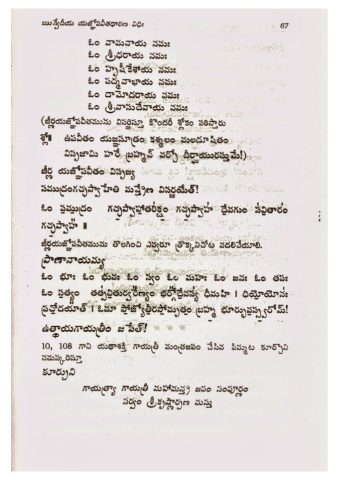 ఋగ్వేదీయ యజ్ఞోపవీతధారణ విధిః 67
ఓం వామనాయ నమః
ఓం శ్రీధరాయ నమః
ఓం హృషీకేశాయ నమః
ఓం పద్మనాభాయ నమః
ఓం దామోదరాయ నమః
ఓం శ్రీవాసుదేవాయ నమః
(జీర్ణయజ్ఞోపవీతమును విసర్జిస్తూ కొందరీ శ్లోకం పఠిస్తారు
శ్లో॥ ఉపవీతం యజ్ఞసూత్రం కశ్మలం మలదూషితం
విసృజామి హరే బ్రహ్మన్ వర్చో దీర్ఘాయురస్తుమే!)
జీర్ణ యజ్ఞోపవీతం విసృజ్య
సముద్రంగచ్ఛస్వాహేతి మన్త్రేణ విసర్జయేత్!
ఓం సముద్రం గచ్ఛస్వాహాంతరిక్షం గచ్ఛస్వాహా దేవగుం సవితారం
గచ్ఛస్వాహా ॥
జీర్ణయజ్ఞోపవీతమును తొలగించి ఎవ్వరూ త్రొక్కనిచోట వదలివేయాలి.
ప్రాణానాయమ్య
ఓం భూః ఓం భువః ఓం స్వం ఓం మహః ఓం జనః ఓం తపః
ఓం సత్యం తత్సవితుర్వరేణ్యం భర్గోదేవస్య ధీమహి । ధియోయోనః
ప్రచోదయాత్ । ఓమా పోజ్యోతీరసోమృతం బ్రహ్మ భూర్భువస్స్వరోమ్!
ఉత్థాయగాయత్రీం జపేత్!
10, 108 గాని యథాశక్తి గాయత్రీ మంత్రజపం చేసిన పిమ్మట కూర్చొని
నమస్కరిస్తూ
కూర్చుని
గాయత్ర్యా గాయత్రీ మహామన్త్ర జపం సంపూర్ణం
సర్వం శ్రీకృష్ణార్పణ మస్తు